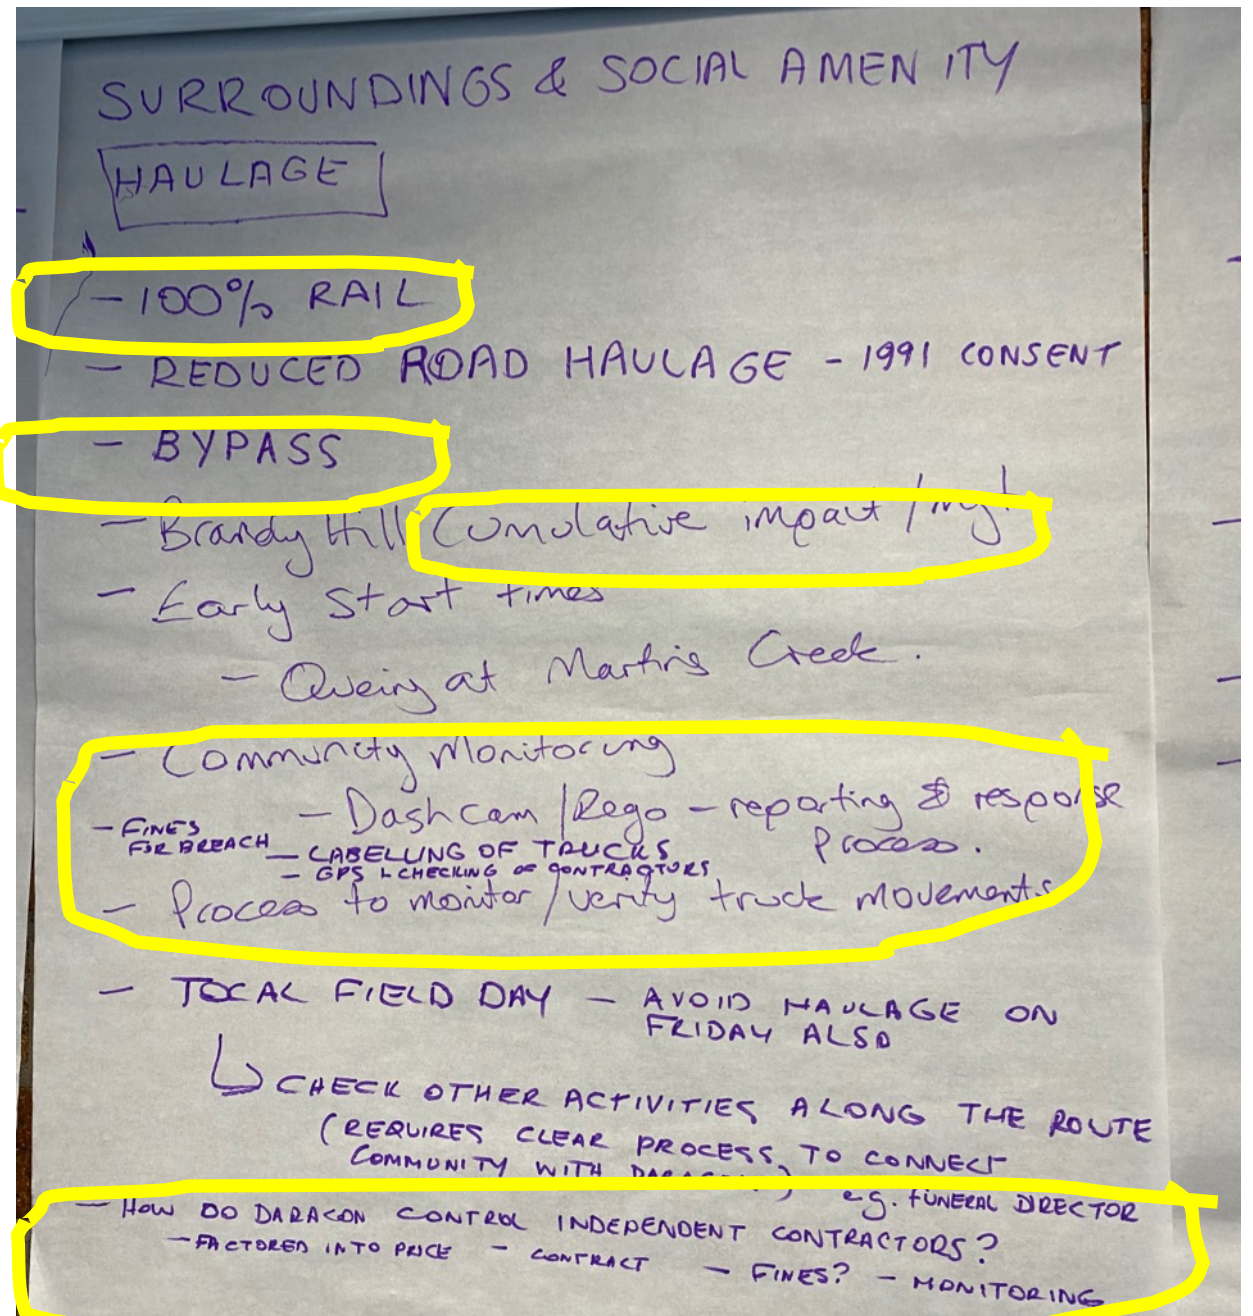 SURROUNDINGS & SOCIAL AMENITY
HAULAGE
- 100% RAIL
- REDUCED ROAD HAULAGE - 1991 CONSENT
- BYPASS
- Brandy Hill Cumulative impact /
- Early Start times
- Queing at Martins Creek.
- Community Monitoring
- Dashcam/Rego - reporting & response
process.
- FINES
FOR BREACH
- LABELLING OF TRUCKS
- GPS & CHECKING OF CONTRACTORS
- Process to monitor/verify truck movements
- TOCAL FIELD DAY - AVOID HAULAGE ON
FRIDAY ALSO
↳ CHECK OTHER ACTIVITIES ALONG THE ROUTE
(REQUIRES CLEAR PROCESS TO CONNECT
COMMUNITY WITH DARACON) e.g. FUNERAL DIRECTOR
- HOW DO DARACON CONTROL INDEPENDENT CONTRACTORS?
- FACTORED INTO PRICE - CONTRACT - FINES? - MONITORING